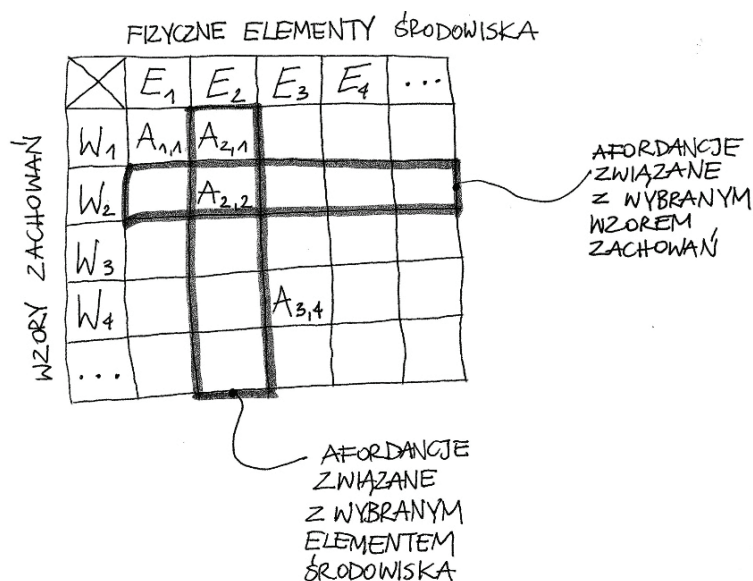 FIZYCZNE ELEMENTY ŚRODOWISKA
E₁ E₂ E₃ E₄ ...
WZORY ZACHOWAŃ
W₁ A₁,₁ A₂,₁
W₂ A₂,₂
W₃
W₄ A₃,₄
...
AFORDANCJE
ZWIĄZANE
Z WYBRANYM
WZOREM
ZACHOWAŃ
AFORDANCJE
ZWIĄZANE
Z WYBRANYM
ELEMENTEM
ŚRODOWISKA